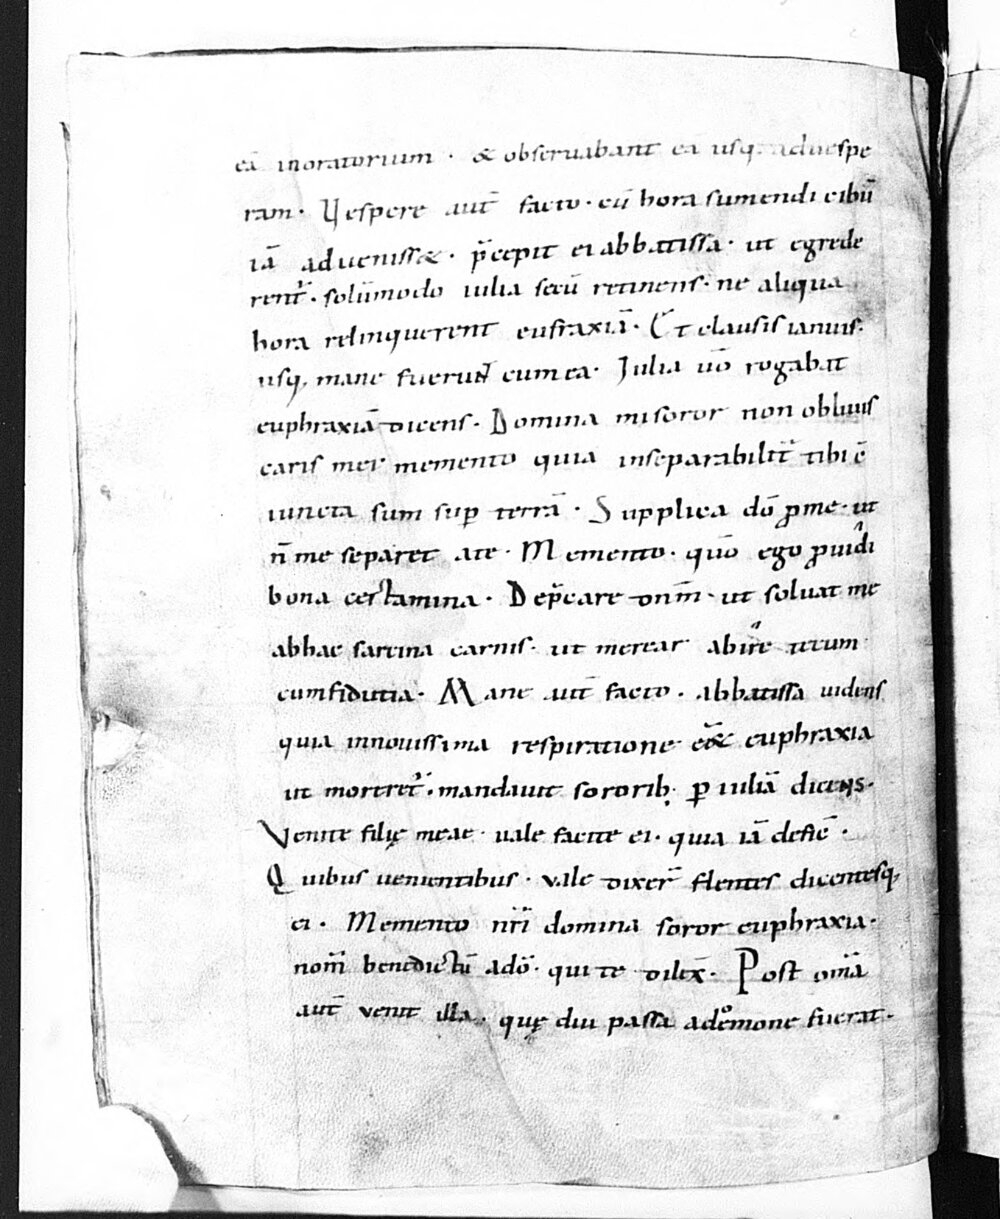 eā inoratorium · & obseruabant eā usq: aduespe
ram · Vespere aut̄ facto · cū hora sumendi cibū
iā adueniss& · p̄cepit ei abbatissa · ut egrede
rent᷑ · solūmodo iulia secū retinens · ne aliqua
hora relinquerent eufraxiā · Et clausis ianuis ·
usq; mane fuerunt cum ea · Julia u̅o rogabat
euphraxiā dicens · Domina mi soror non obliuis
caris mei memento quia inseparabilit̄ tibi ē
iuncta sum sup̱ terrā · Supplica dō ꝓme · ut
n̄ me separet ate · Memento · quō ego ꝓuidi
bona certamina · Dep̄care dn̄m · ut soluat me
abhac sarcina carnis · ut merear abire tecum
cumfidutia · Mane aut̄ facto · abbatissa uidens
quia innouissima respiratione eēt euphraxia
ut moreret᷑ · mandauit sororib; ꝑ iuliā dicens ·
Venite filię meae · uale facite ei · quia iā defiē ·
Quibus uenientibus · vale dixer̄ flentes dicentesq;
ei · Memento nr̄i domina soror euphraxia ·
nom̄ benedictū adō · qui te dilex̄ · Post om̄a
aut̄ venit illa · quę diu passa ademone fuerat ·